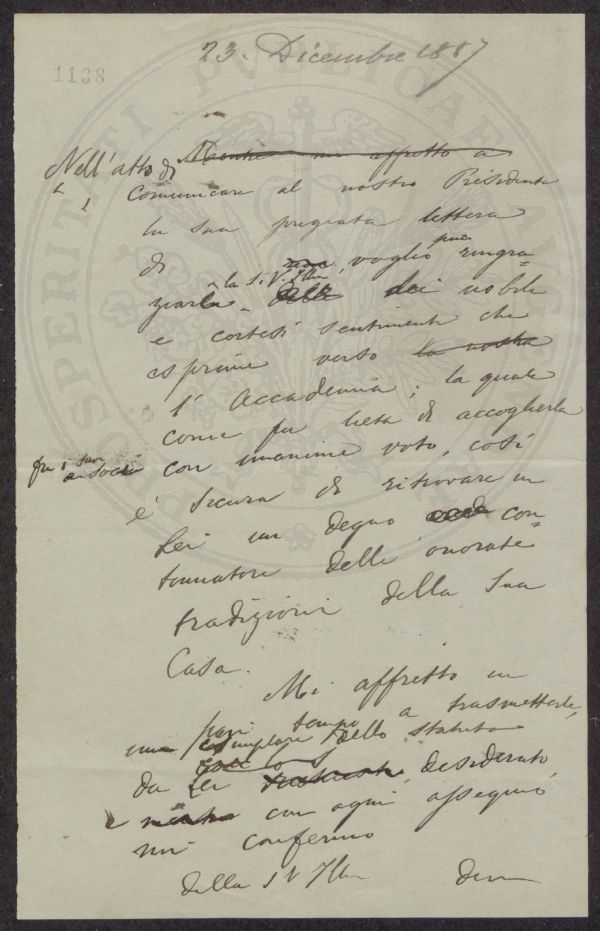 23. Dicembre 1887
1138
PROSPERITATI PUBLICAE AUGENDAE
Nell'atto di Mentre mi affretto a
comunicare al nostro Presidente
la sua pregiata lettera
di voglio pure ringra-
ziarla la S. V. Ill. delle dei nobili
e cortesi sentimenti che
esprime verso la nostra
l'Accademia; la quale
come fu lieta di accoglierla
fra i suoi soci con unanime voto, così
è sicura di ritrovare in
Lei un degno con-
tinuatore delle onorate
tradizioni della Sua
Casa.
Mi affretto in
pari tempo a trasmetterle,
un esemplare dello Statuto
da Lei desiderato,
e mentre con ogni ossequio
mi confermo
della S V Ill
Dev